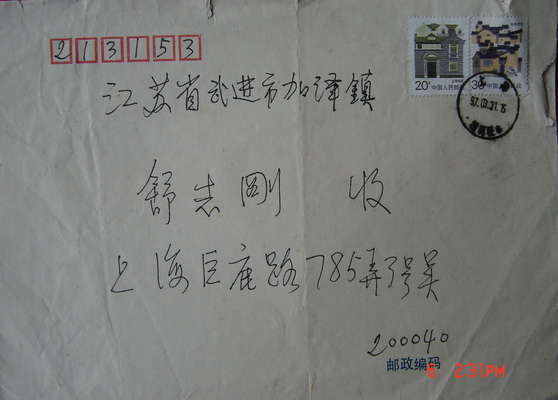 213153
20分 中国人民邮政
30分 中国人民邮政
江苏省武进市加泽鎮
舒志剛 收
上海巨鹿路785弄3号吴
200040
邮政编码
6 2:31PM